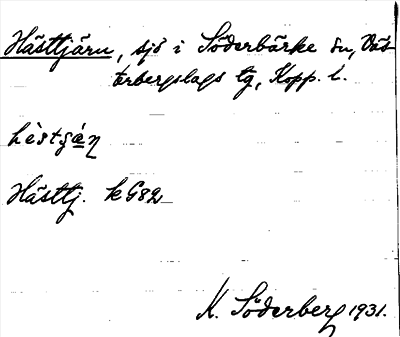 Hästtjärn, sjö i Söderbärke sn, Väs
terbergslags tg, Kopp. l.
hèstʂæ̀ɳ
Hästtj. k G82
K. Söderberg 1931.